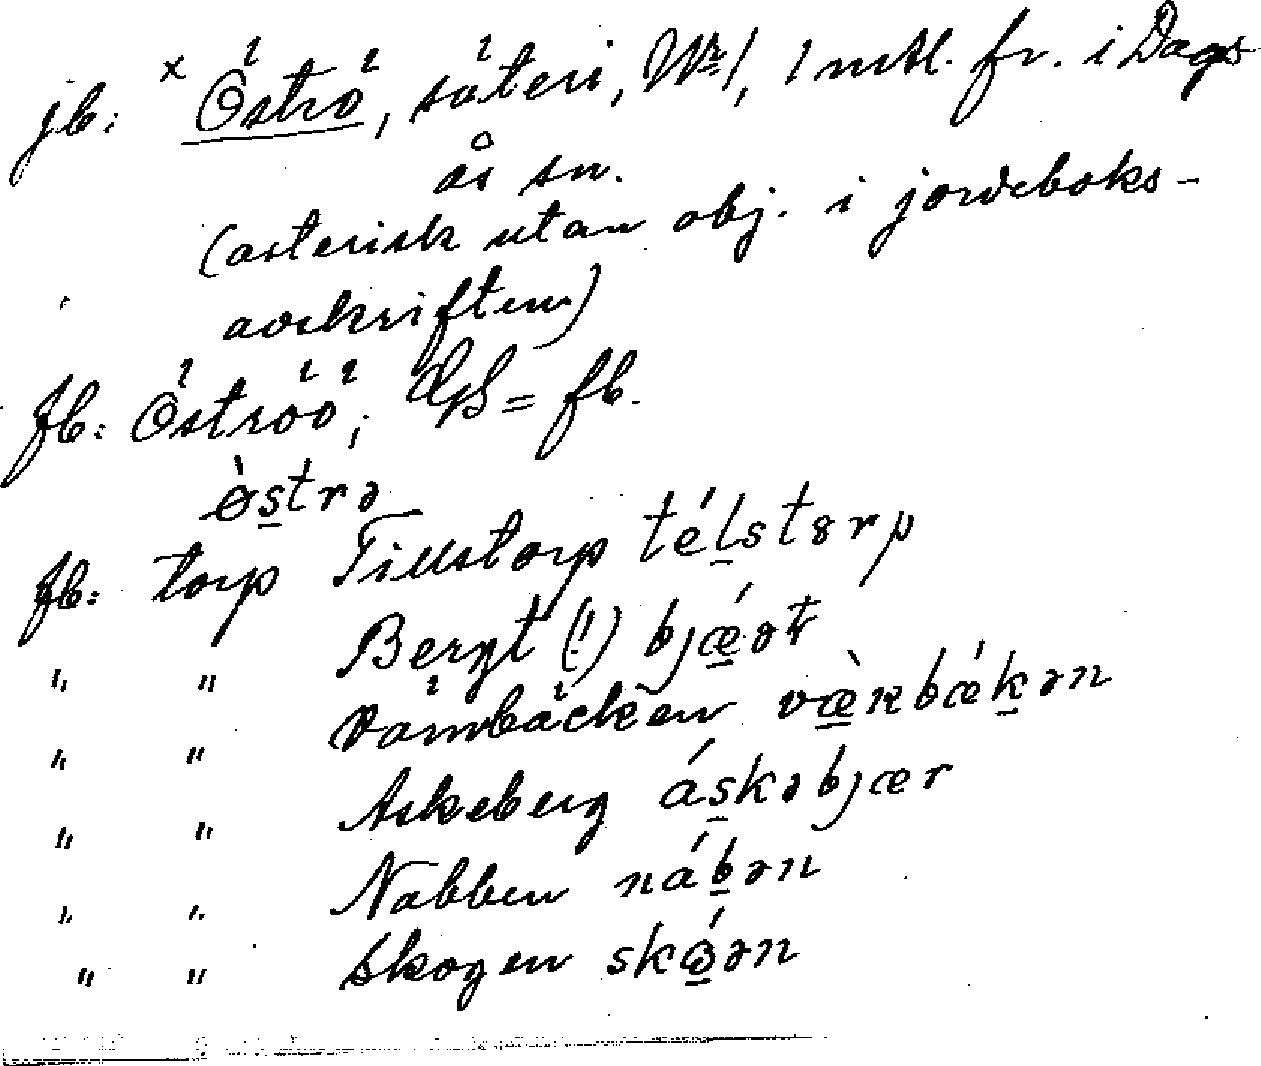 jb: × Öströ, säteri, Wr/, 1 mtl. fr. i Dags
ås sn.
(asterisk utan obj. i jordeboks-
avskriften)
fb: Öströö; = fb.
ø̀s̲trə
fb: torp Tillstorp télstɵrp
„ „ Bergt (!) bjǽ̲ət
„ „ Vämbäcken væ̲̀nbǽk̲ən
„ „ Askeberg ás̲kəbjær
„ „ Nabben náb̲ən
„ „ Skogen